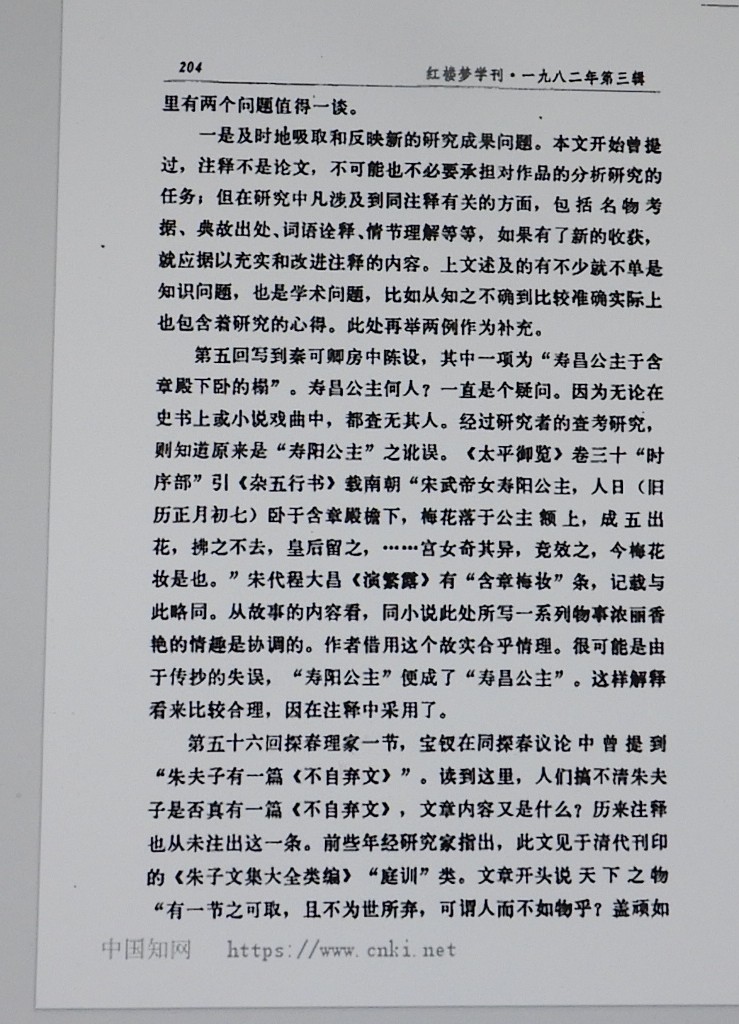 204
红楼梦学刊·一九八二年第三辑
里有两个问题值得一谈。
一是及时地吸取和反映新的研究成果问题。本文开始曾提
过，注释不是论文，不可能也不必要承担对作品的分析研究的
任务；但在研究中凡涉及到同注释有关的方面，包括名物考
据、典故出处、词语诠释、情节理解等等，如果有了新的收获，
就应据以充实和改进注释的内容。上文述及的有不少就不单是
知识问题，也是学术问题，比如从知之不确到比较准确实际上
也包含着研究的心得。此处再举两例作为补充。
第五回写到秦可卿房中陈设，其中一项为“寿昌公主于含
章殿下卧的榻”。寿昌公主何人？一直是个疑问。因为无论在
史书上或小说戏曲中，都查无其人。经过研究者的查考研究，
则知道原来是“寿阳公主”之讹误。《太平御览》卷三十“时
序部”引《杂五行书》载南朝“宋武帝女寿阳公主，人日（旧
历正月初七）卧于含章殿檐下，梅花落于公主额上，成五出
花，拂之不去，皇后留之，……宫女奇其异，竞效之，今梅花
妆是也。”宋代程大昌《演繁露》有“含章梅妆”条，记载与
此略同。从故事的内容看，同小说此处所写一系列物事浓丽香
艳的情趣是协调的。作者借用这个故实合乎情理。很可能是由
于传抄的失误，“寿阳公主”便成了“寿昌公主”。这样解释
看来比较合理，因在注释中采用了。
第五十六回探春理家一节，宝钗在同探春议论中曾提到
“朱夫子有一篇《不自弃文》”。读到这里，人们搞不清朱夫
子是否真有一篇《不自弃文》，文章内容又是什么？历来注释
也从未注出这一条。前些年经研究家指出，此文见于清代刊印
的《朱子文集大全类编》“庭训”类。文章开头说天下之物
“有一节之可取，且不为世所弃，可谓人而不如物乎？盖顽如
中国知网 https://www.cnki.net